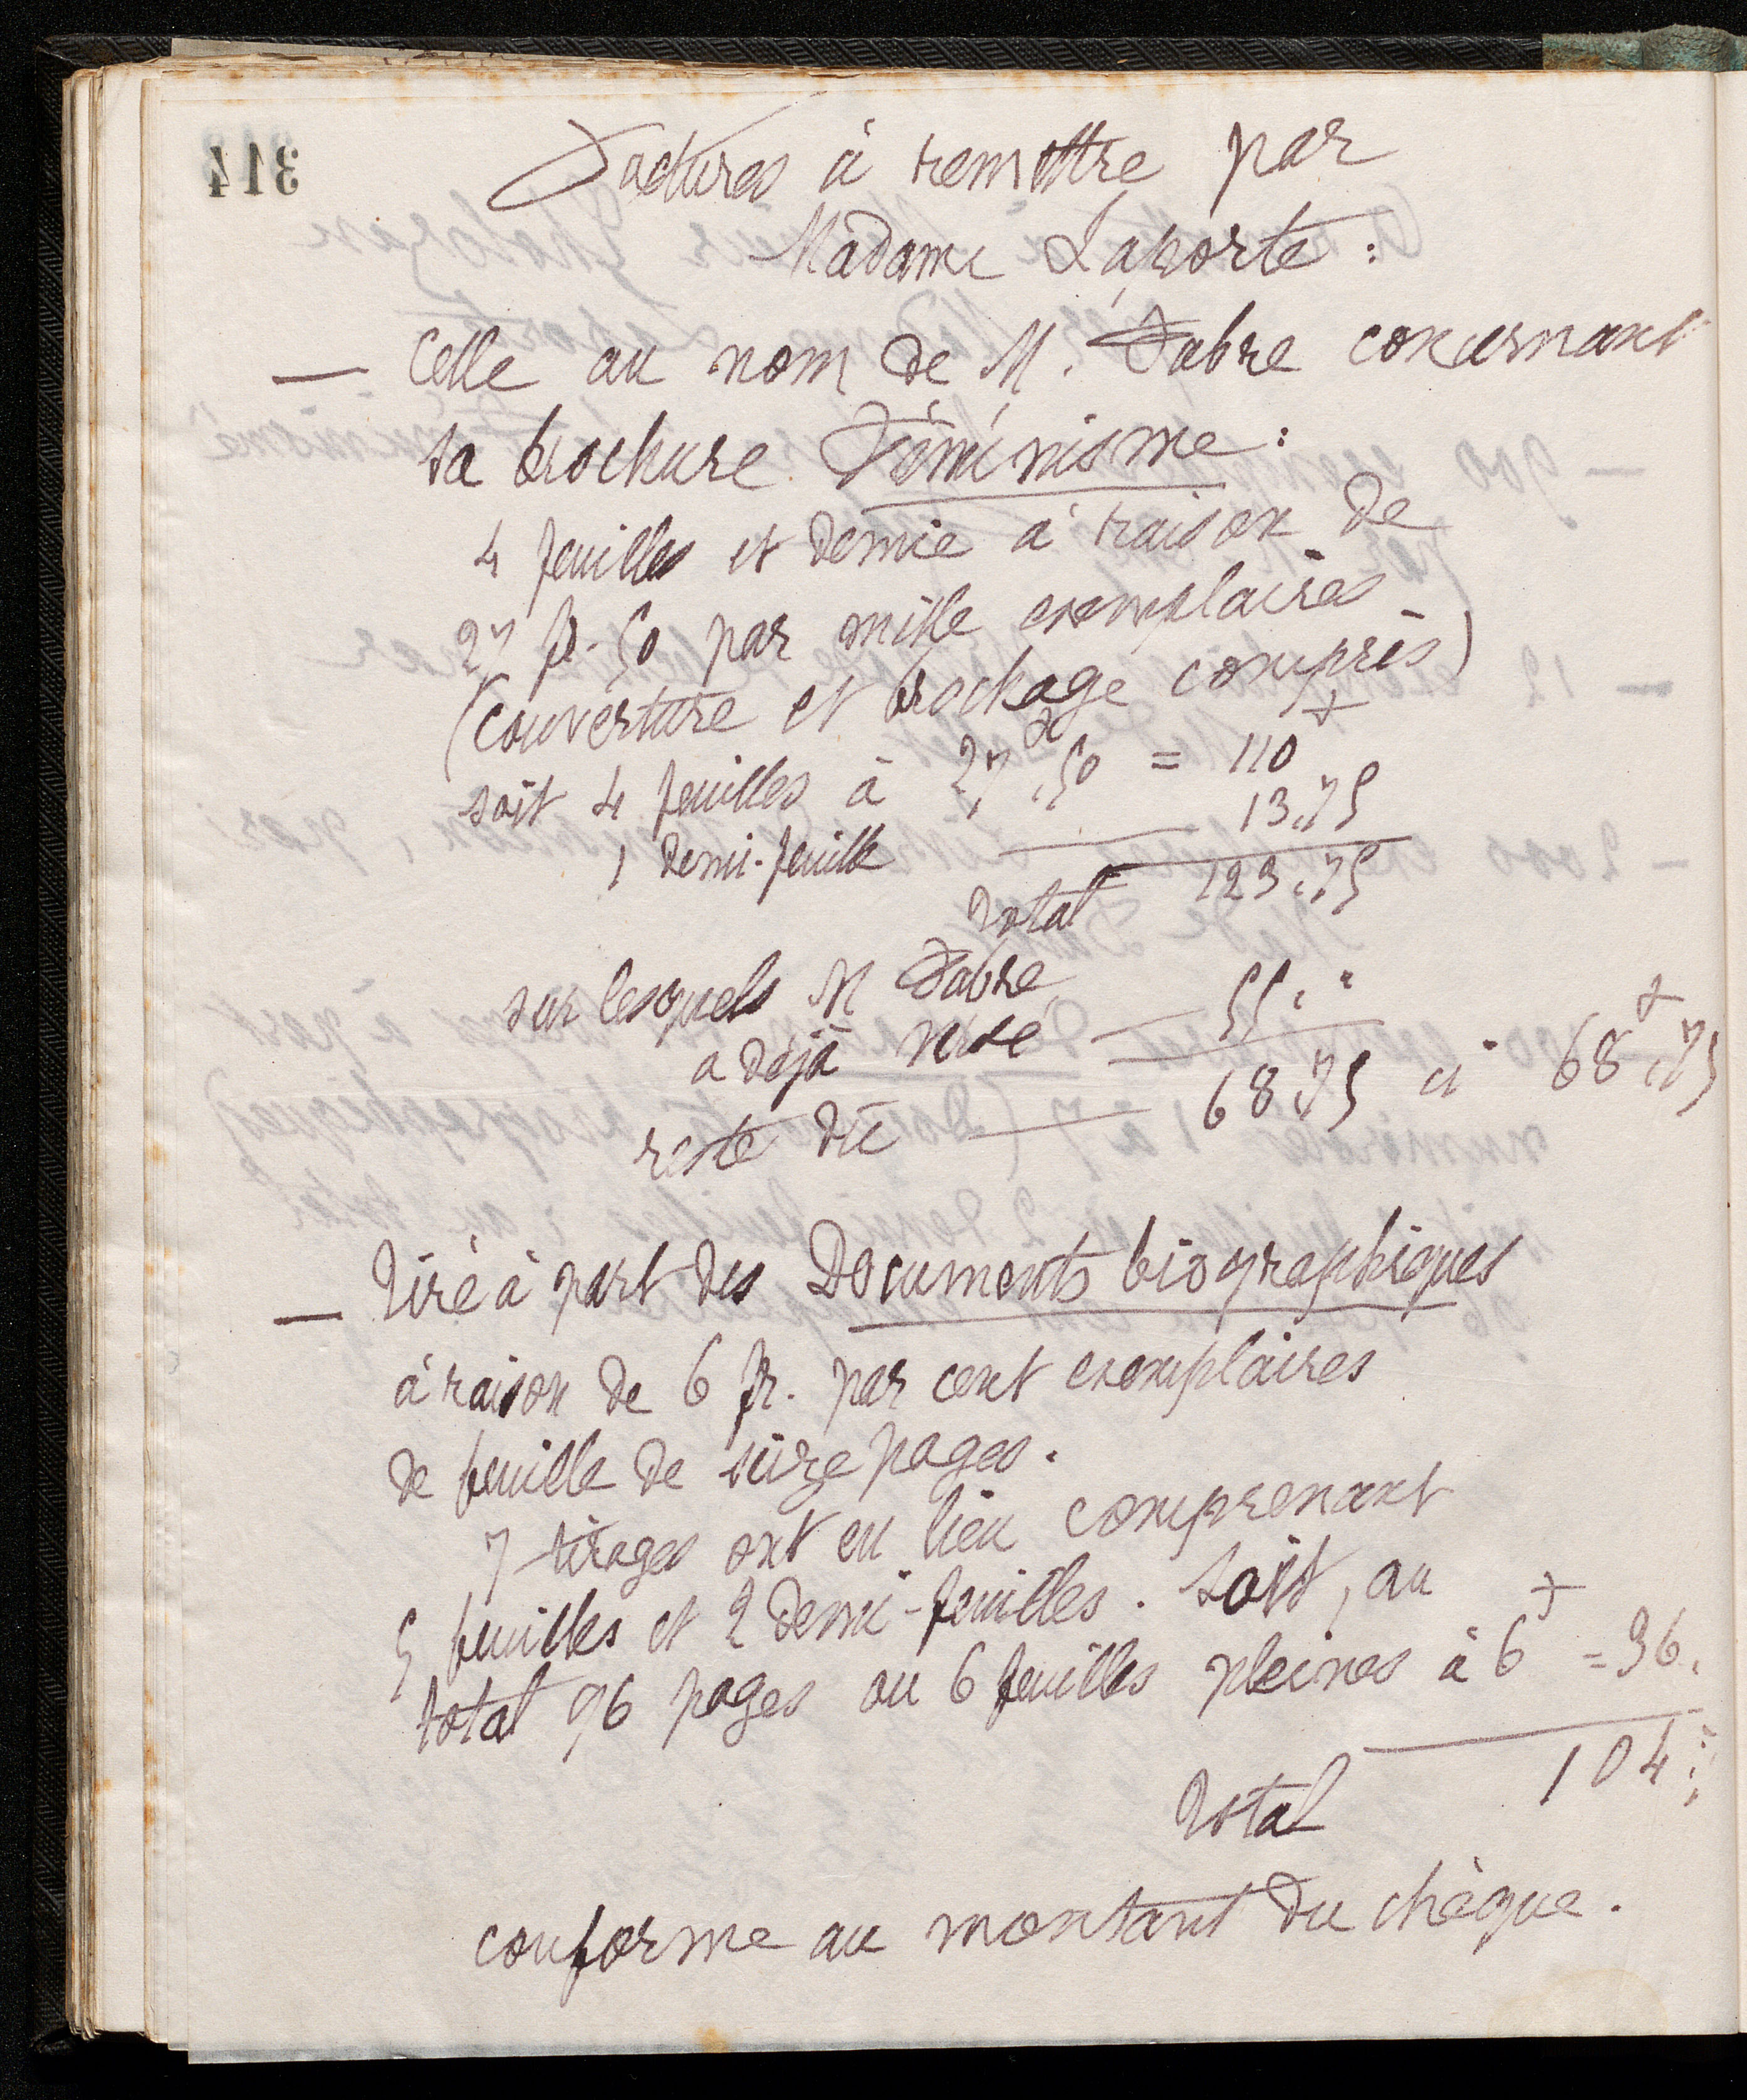 314
Factures à remettre par
Madame Laporte :
— Celle au nom de M. Fabre concernant
sa brochure Féminisme :
4 feuilles et demie à raison de
27 fr. 50 par mille exemplaires
(couverture et brochage compris)
soit 4 feuilles à 27f,50 = 110f
1 demi-feuille — 13,75
Total 123,75
sur lesquels M Fabre
a déjà versé — 55, "
reste dû — 68,75 ci 68f,75
— Tiré à part des Documents biographiques
à raison de 6 fr. par cent exemplaires
de feuille de seize pages.
7 tirages ont eu lieu comprenant
5 feuilles et 2 demi-feuilles. Soit, au
total 96 pages ou 6 feuilles pleines à 6f = 36.
Total 104
conforme au montant du chèque.